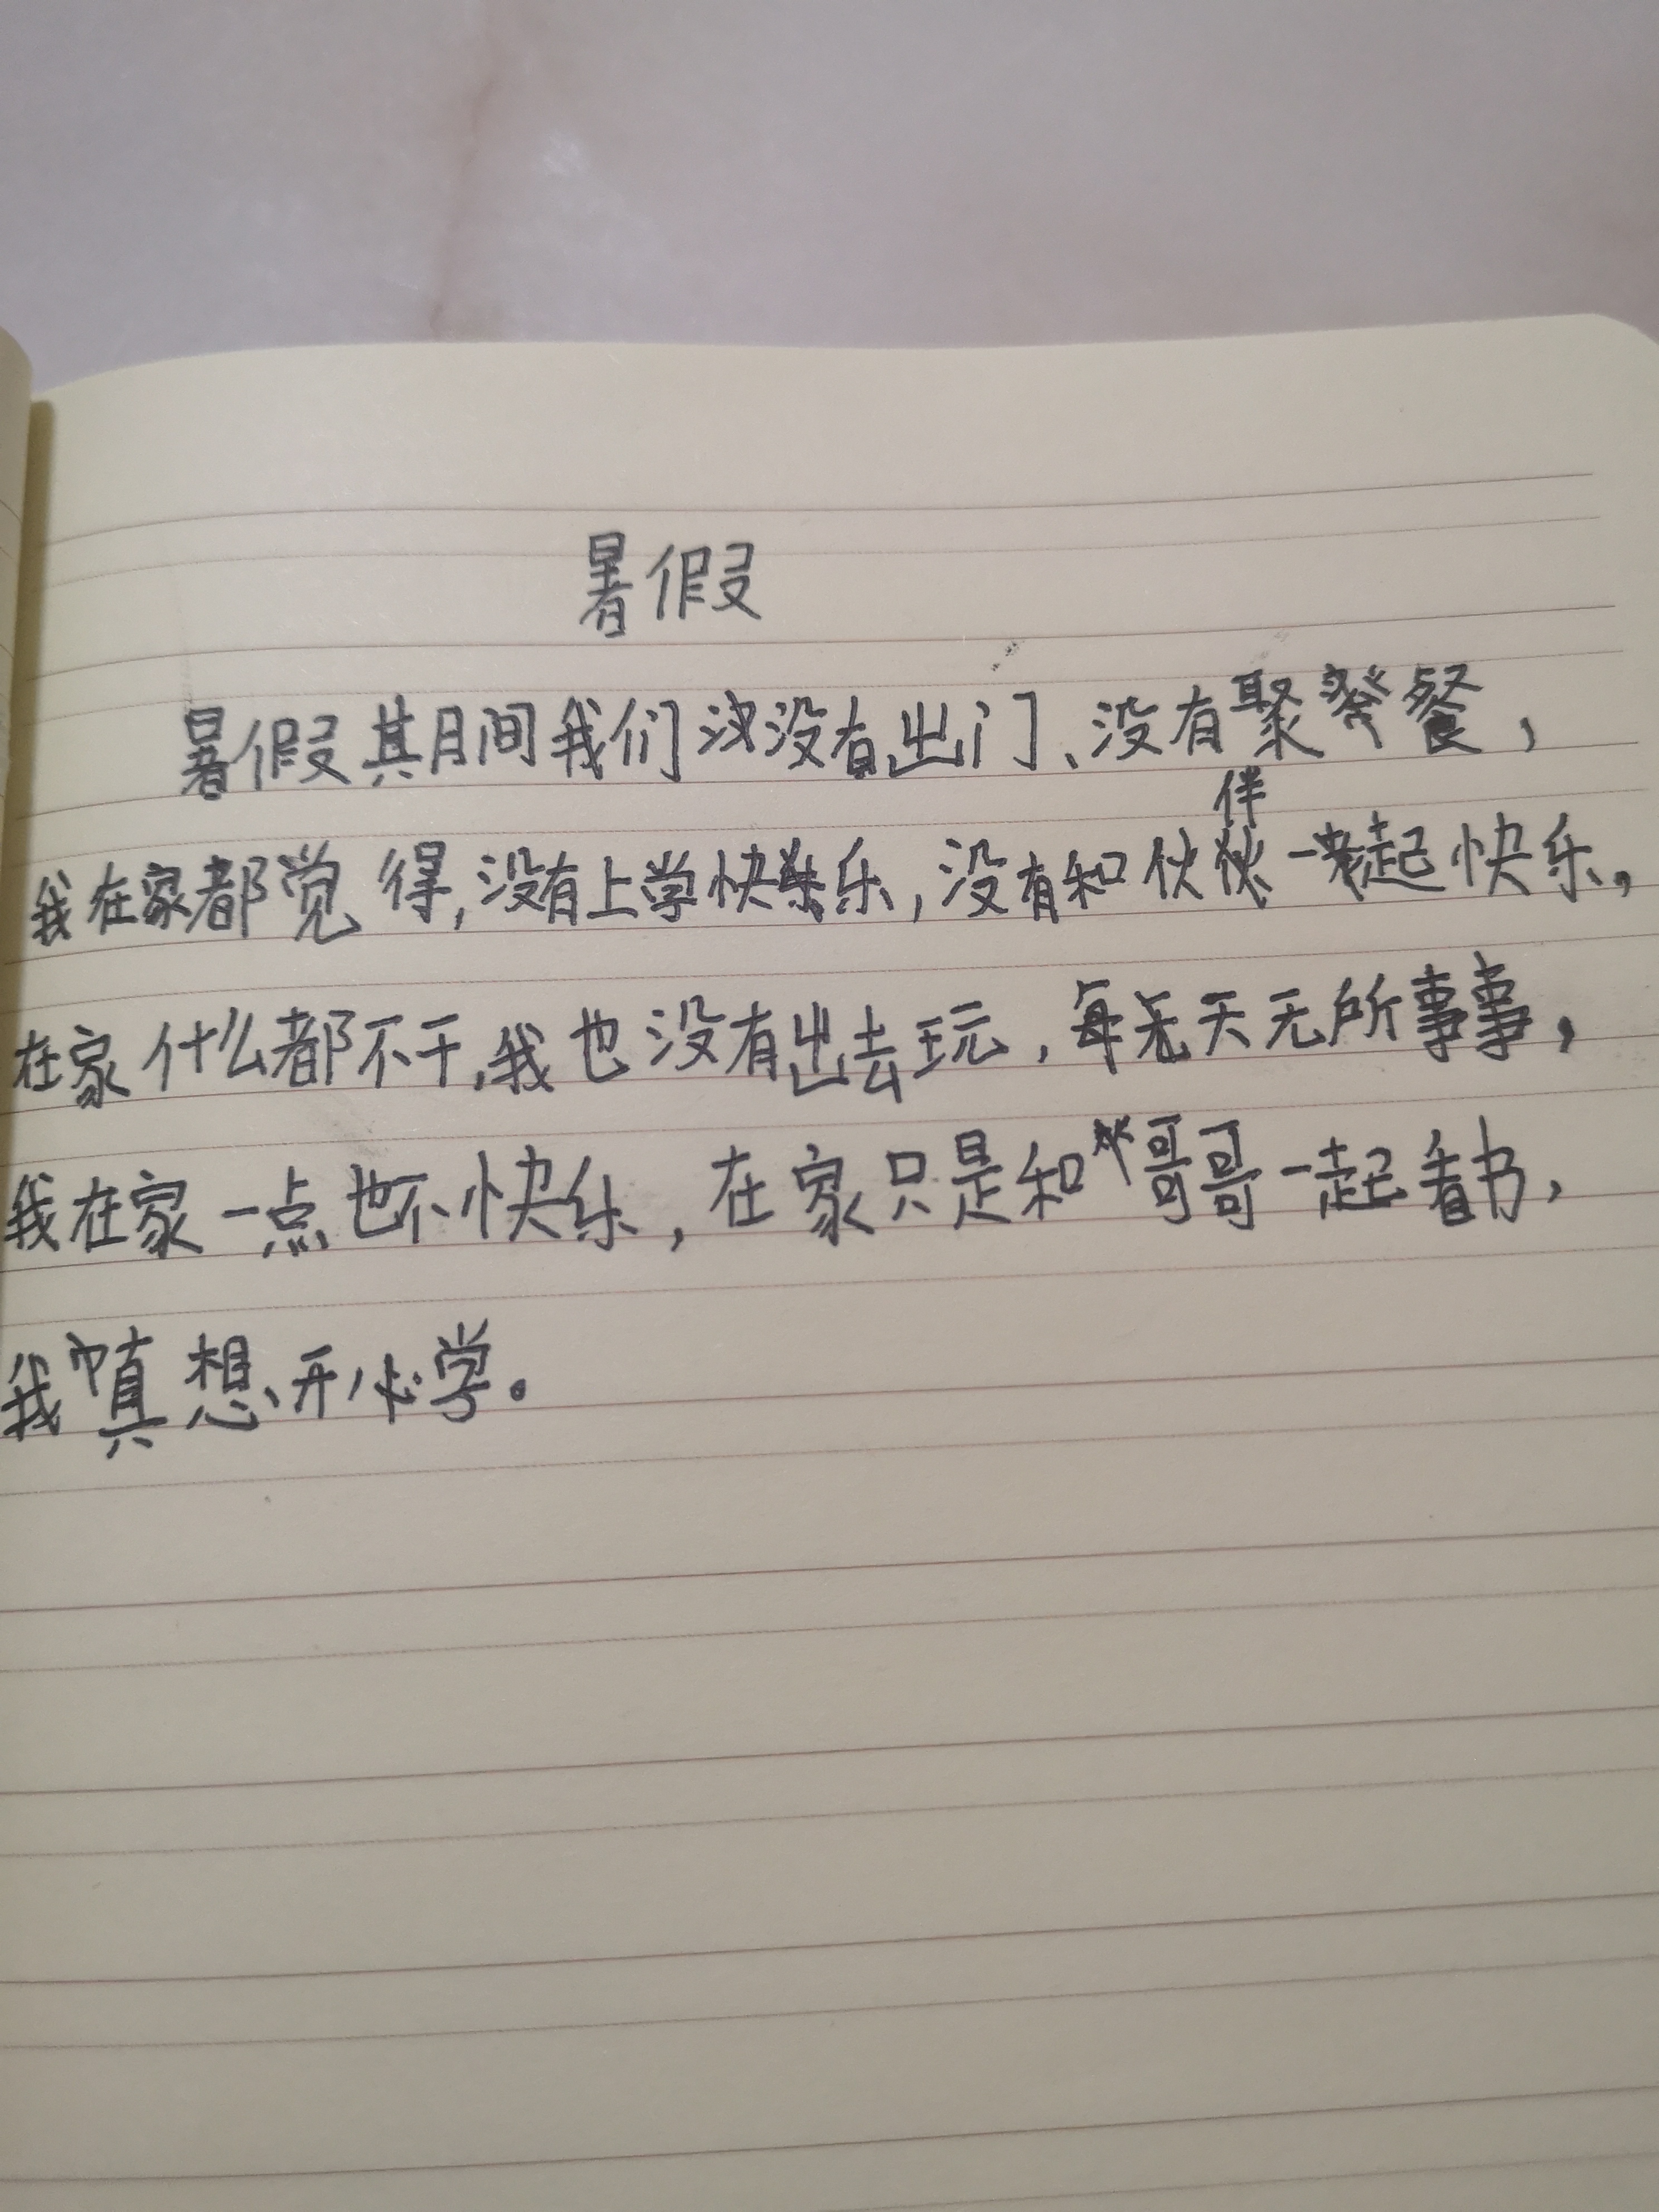 暑假
暑假期间我们没没有出门、没有聚餐,
我在家都觉得,没有上学快乐,没有和伙伴一起快乐。
在家什么都不干,我也没有出去玩,每天无所事事,
我在家一点也不快乐,在家只是和哥哥一起看书,
我真想开学。